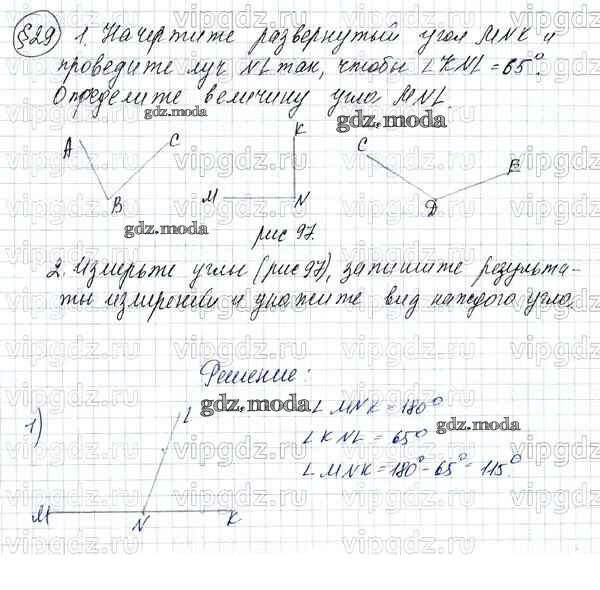 §29 1. Начертите развернутый угол MNK и
проведите луч NL так, чтобы ∠KNL = 65°.
Определите величину угла MNL.
gdz.moda
gdz.moda
A C K C E
M N
B D
gdz.moda
рис 97.
2. Измерьте углы (рис 97), запишите результа-
ты измерений и укажите вид каждого угла.
Решение:
1) L
gdz.moda
∠MNK = 180°
gdz.moda
∠KNL = 65°
∠MNK = 180° - 65° = 115°.
M N K
vipgdz.ru